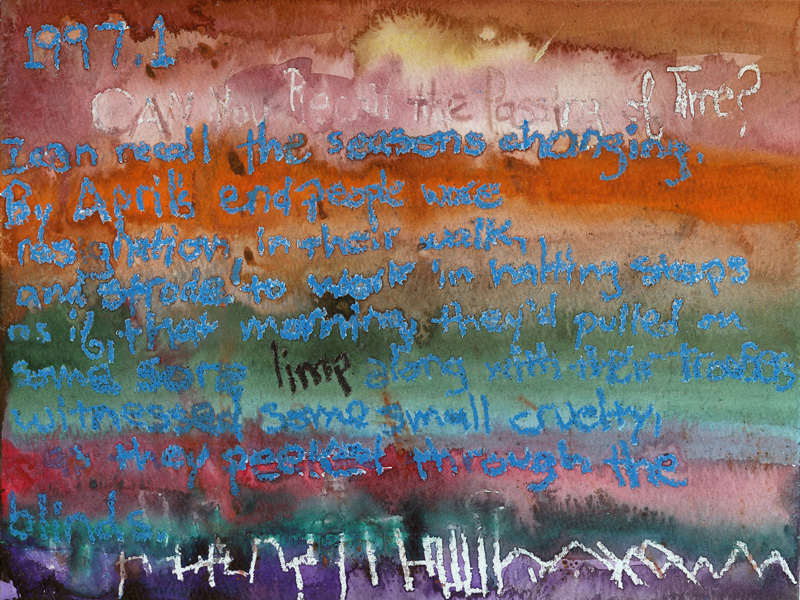 1997.1
CAN You Recall the Passing of Time?
I can recall the seasons changing.
By April's end people wore
resignation in their walk,
and strode to work in halting steps
as if, that morning, they'd pulled on
some sore limp along with their trousers
witnessed some small cruelty,
as they peeked through the
blinds.